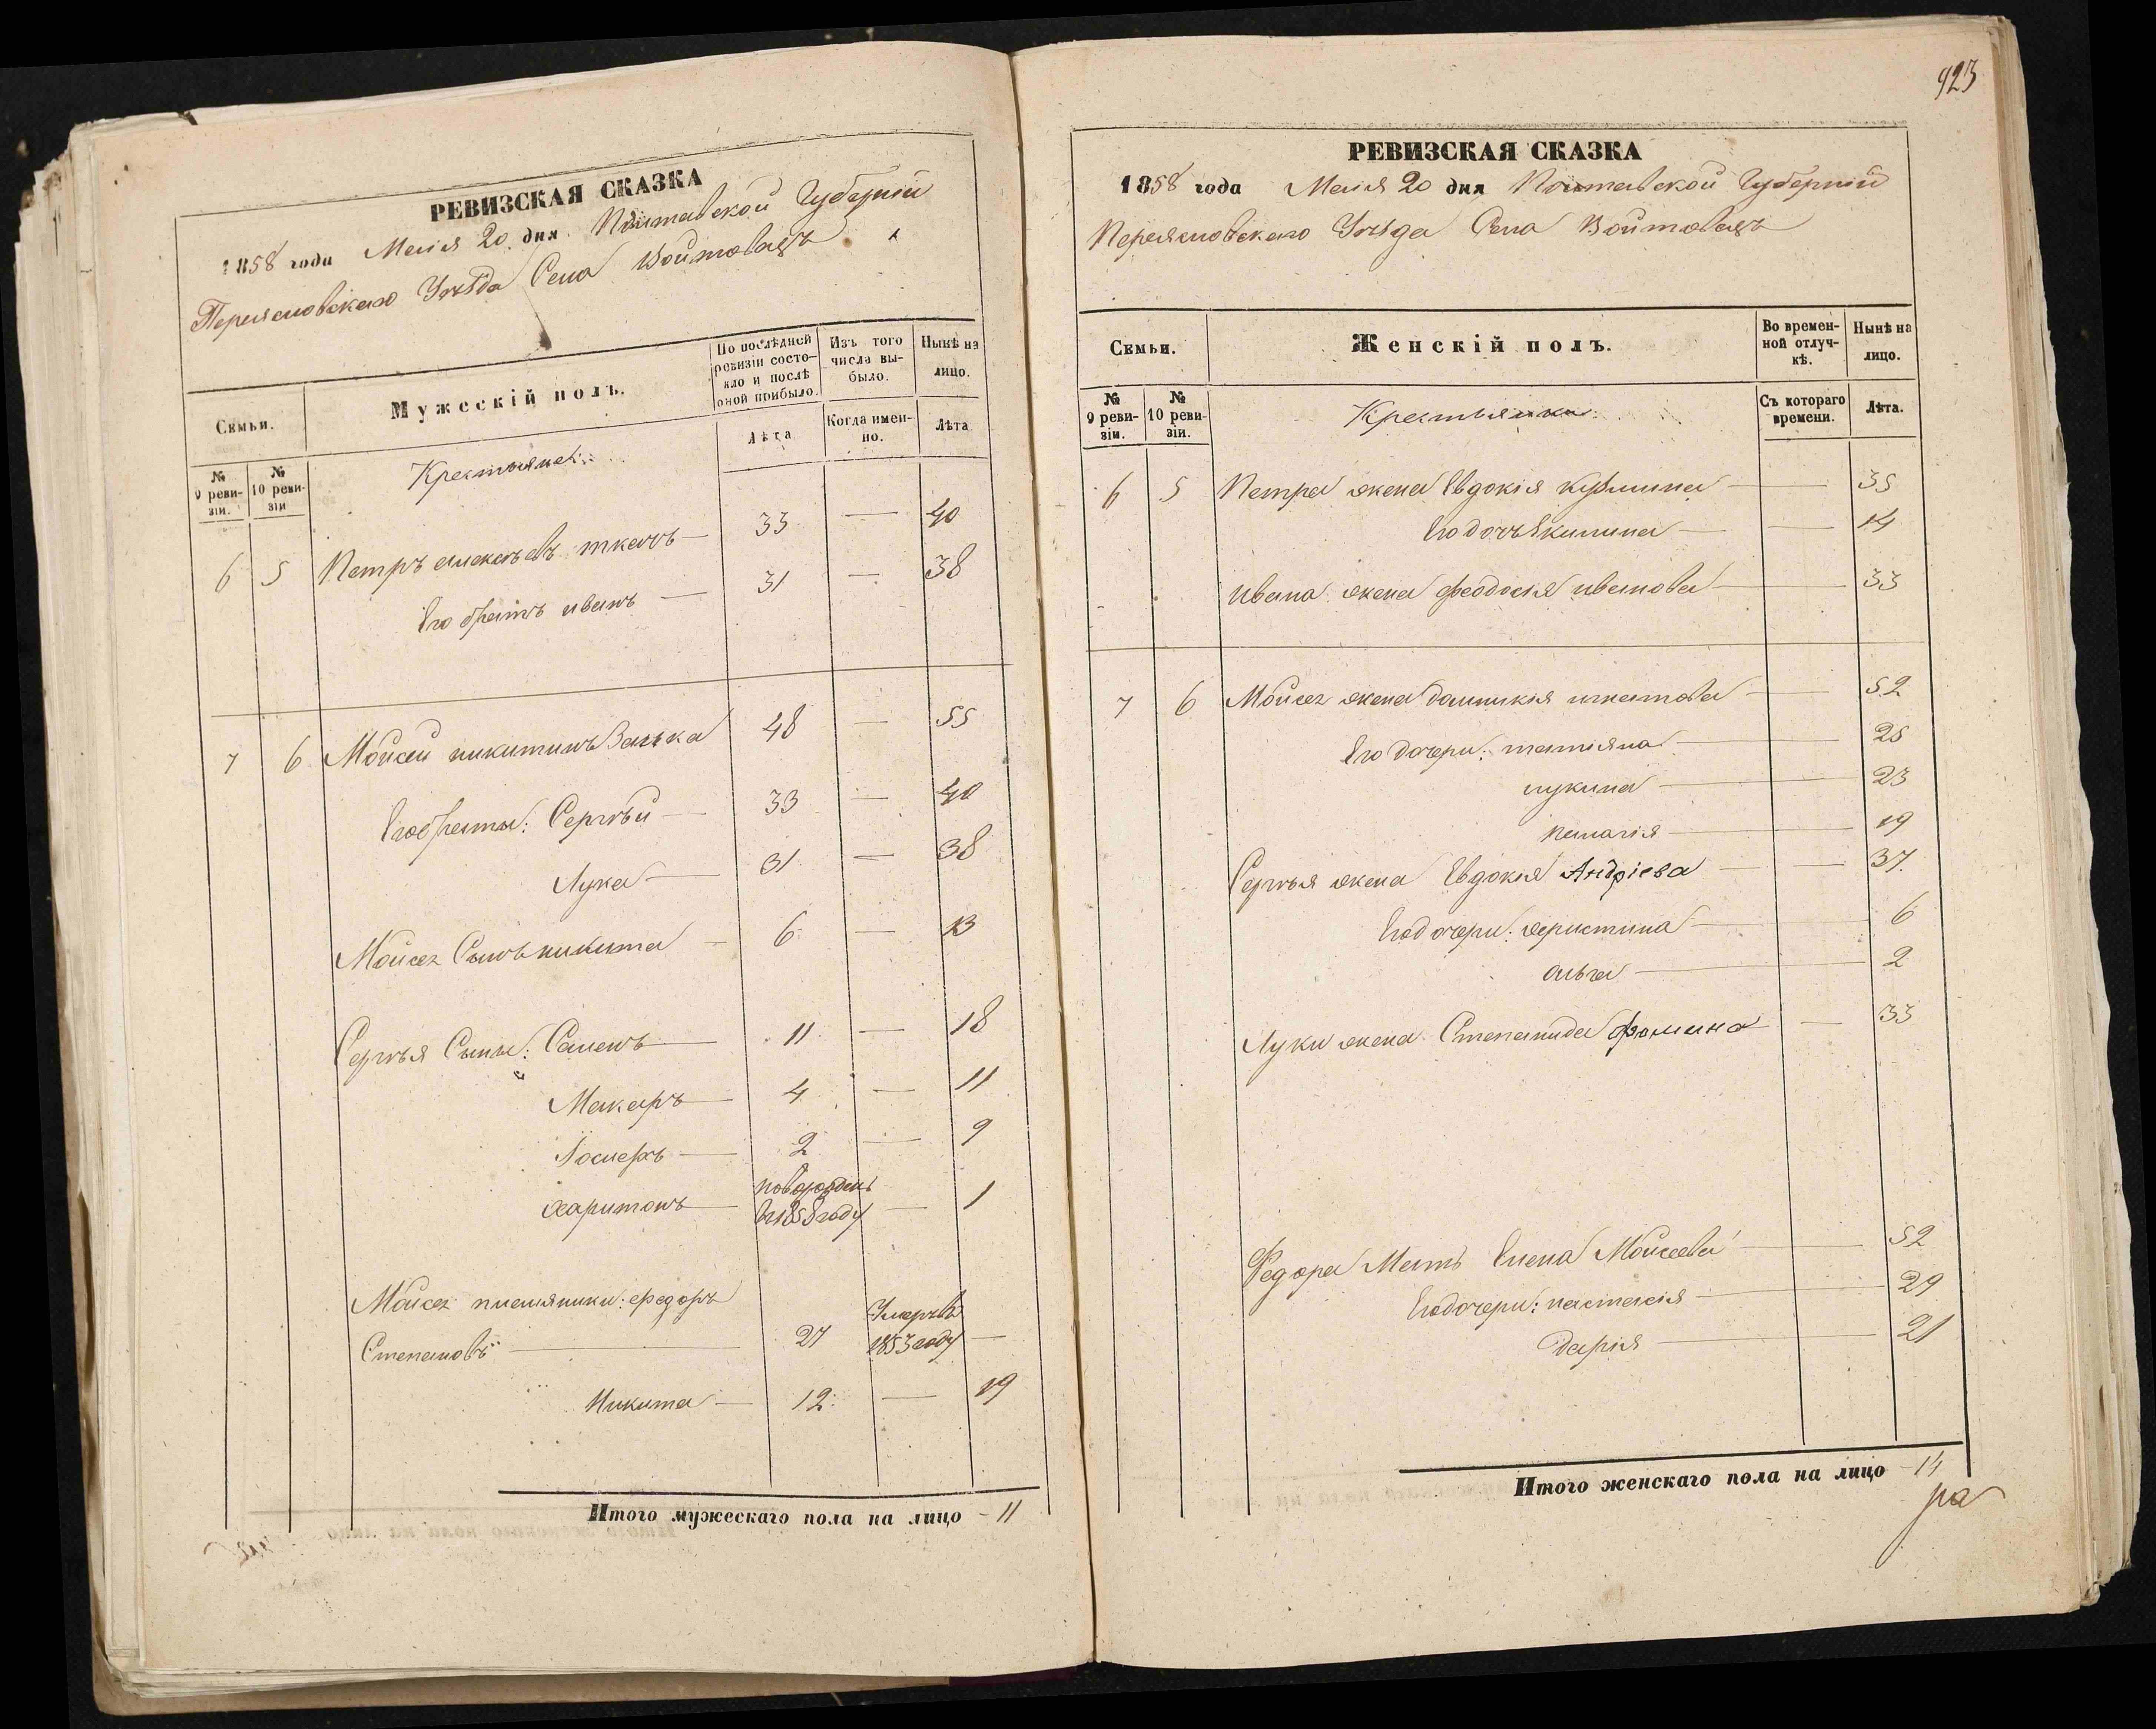 РЕВИЗСКАЯ СКАЗКА
1858 года Маія 20 дня Полтавской Губерніи
Переясловскаго Уѣзда Села Войтовецъ
Семьи.
Мужескій полъ.
По послѣдней ревизіи состояло и послѣ оной прибыло.
Изъ того числа выбыло.
Нынѣ на лицо.
№ 9 ревизіи.
№ 10 ревизіи
Крестьяне:
Лѣта
Когда именно.
Лѣта
6 5 Петръ алексѣевъ ткачъ — 33 — 40
Его братъ иванъ — 31 — 38
7 6 Мойсей никитинъ Заика 48 — 55
Его браты: Сергѣй — 33 — 40
Лука — 31 — 38
Мойсея Сынъ никита — 6 — 13
Сергѣя Сыны: Самонъ — 11 — 18
Макаръ — 4 — 11
— 2 — 9
харитонъ — новорожденъ — 1
въ 1858 году
Мойсея племяники: федоръ
Степановъ — 27 Умеръ въ 1853 году —
Никита — 12 — 19
Итого мужескаго пола на лицо - 11
923
РЕВИЗСКАЯ СКАЗКА
1858 года Маія 20 дня Полтавской Губерніи
Переясловскаго Уѣзда Села Войтовецъ
Семьи.
Женскій полъ.
Во временной отлучкѣ.
Нынѣ на лицо.
№ 9 ревизіи.
№ 10 ревизіи.
Крестьянки
Съ котораго времени.
Лѣта.
6 5 Петра жена Евдокія кузмина — — 35
Его дочь Акилина — — 14
ивана жена феодосія иванова — — 33
7 6 Мойсея жена домникія игнатова — — 52
Его дочери: татіяна — 25
лукина — 23
пелагія — 19
Сергѣя жена Евдокія Андріева — — 37
Его дочери: христина — 6
ольга — 2
Луки жена Степанида фомина — 33
Федора Мать Елена Мойсеева — 52
Его дочери: настасія — 29
дарія — 21
Итого женскаго пола на лицо - 14
ра